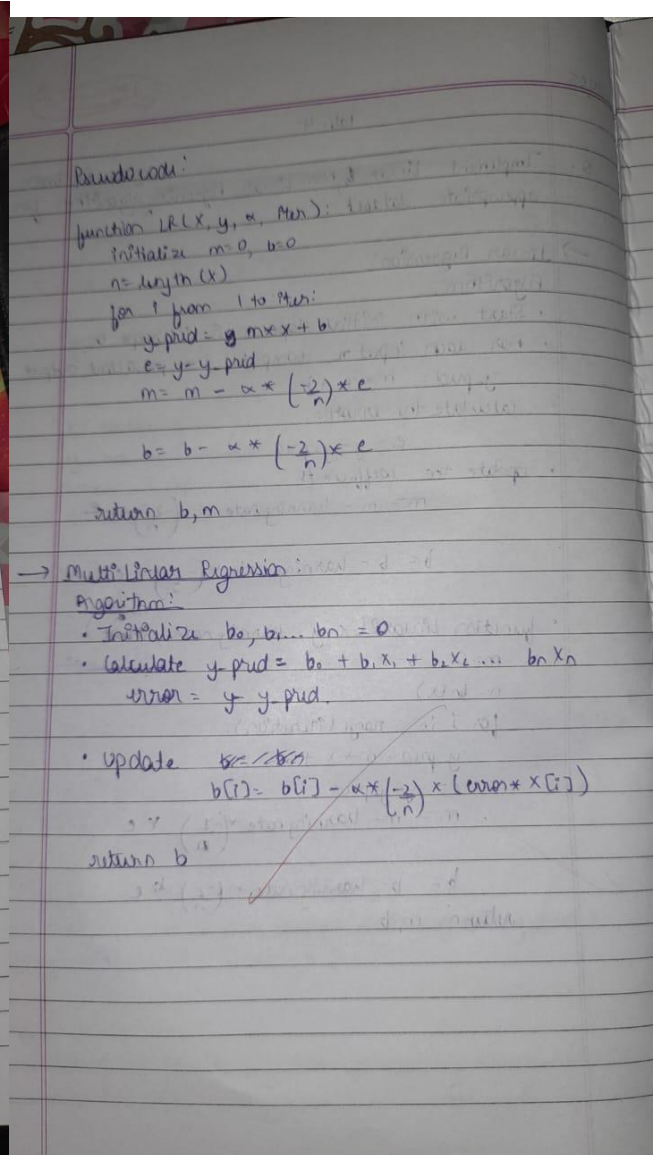 Pseudocode:
function LR(X, y, α, iter):
initialize m=0, b=0
n= length (x)
for i from 1 to iter:
y_pred = m * x + b
e = y - y_pred
m = m - α * (-2/n) * e
b = b - α * (-2/n) * e
return b, m
→ Multi Linear Regression:
Algorithm:
• Initialize b0, b1... bn = 0
• Calculate y-pred = b0 + b1 x1 + b2 x2 ... bn xn
error = y - y-pred.
• Update
b[i] = b[i] - α * (-2/n) * (error * X[i])
return b